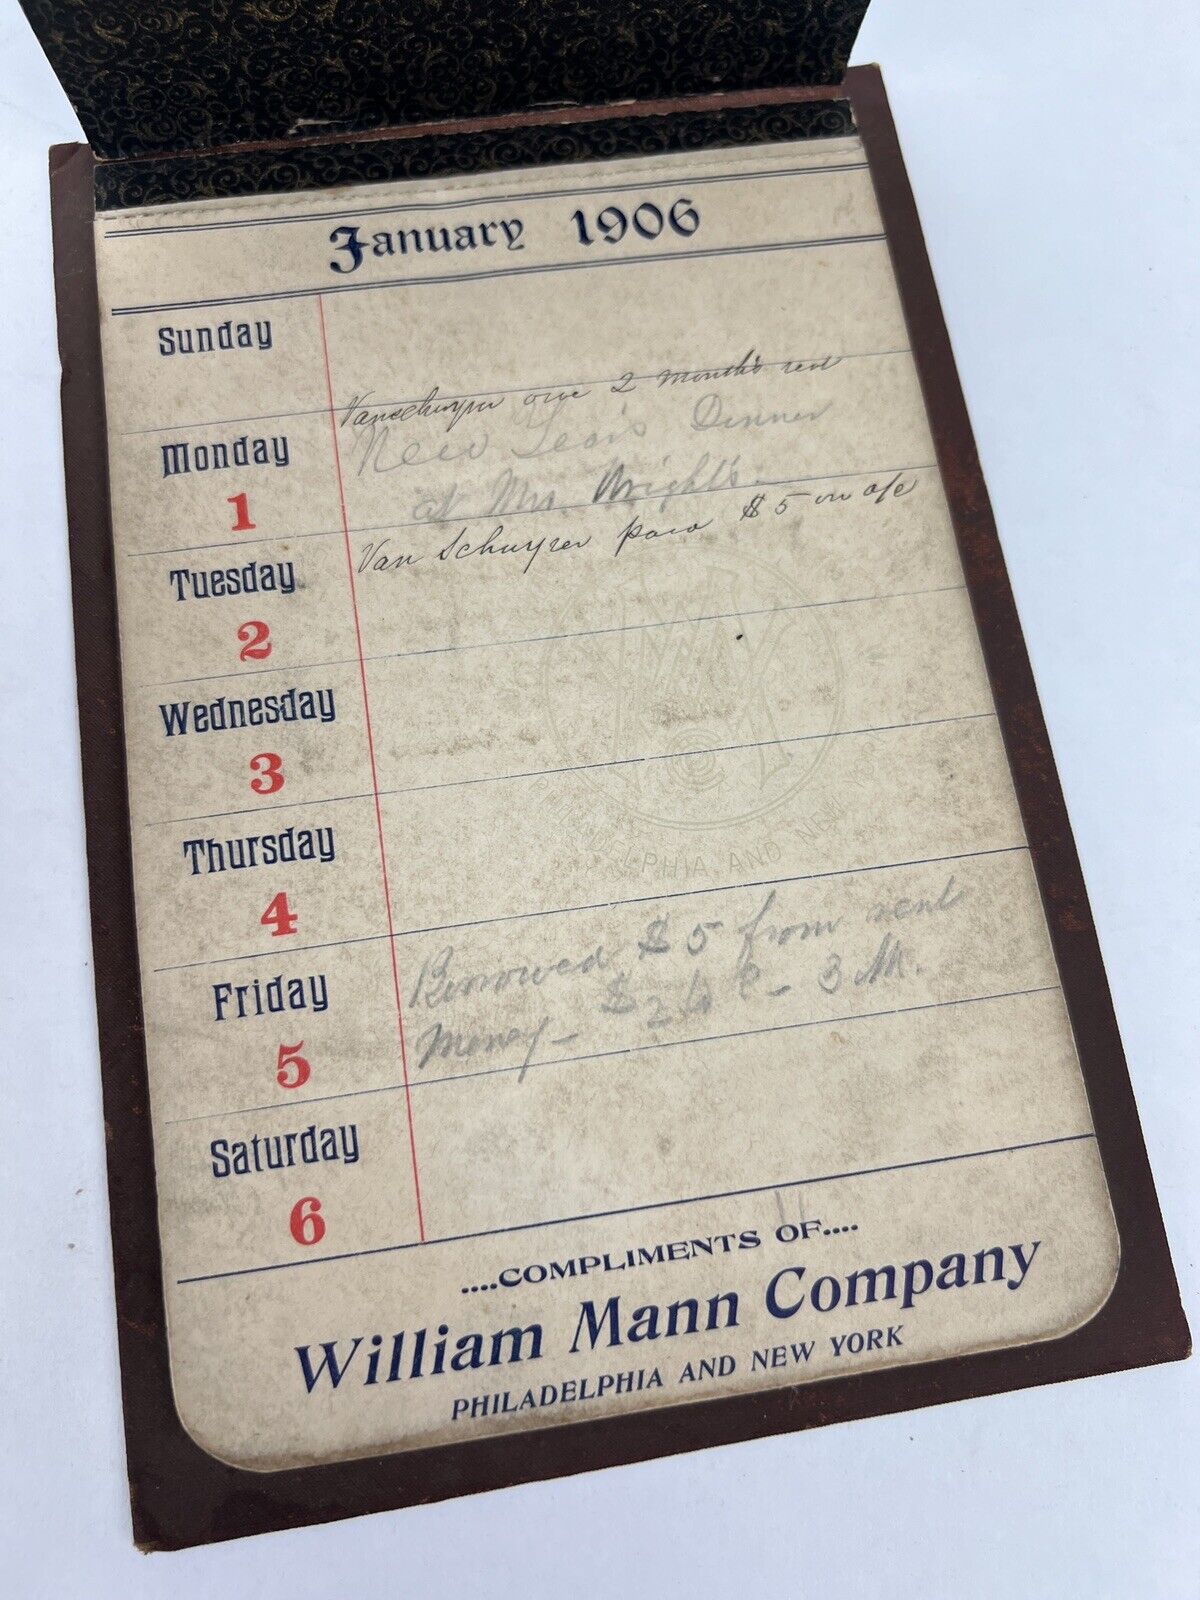 January 1906
Sunday
Vanschuyver owe 2 month's rent
Monday
1
New Year's Dinner
at Mrs. Wright's.
Tuesday
2
Van Schuyver paid $5 on a/c
Wednesday
3
Thursday
4
Friday
5
Borrowed $5 from rent
Money –
Saturday
6
W M Co
PHILADELPHIA AND NEW YORK
....COMPLIMENTS OF....
William Mann Company
PHILADELPHIA AND NEW YORK